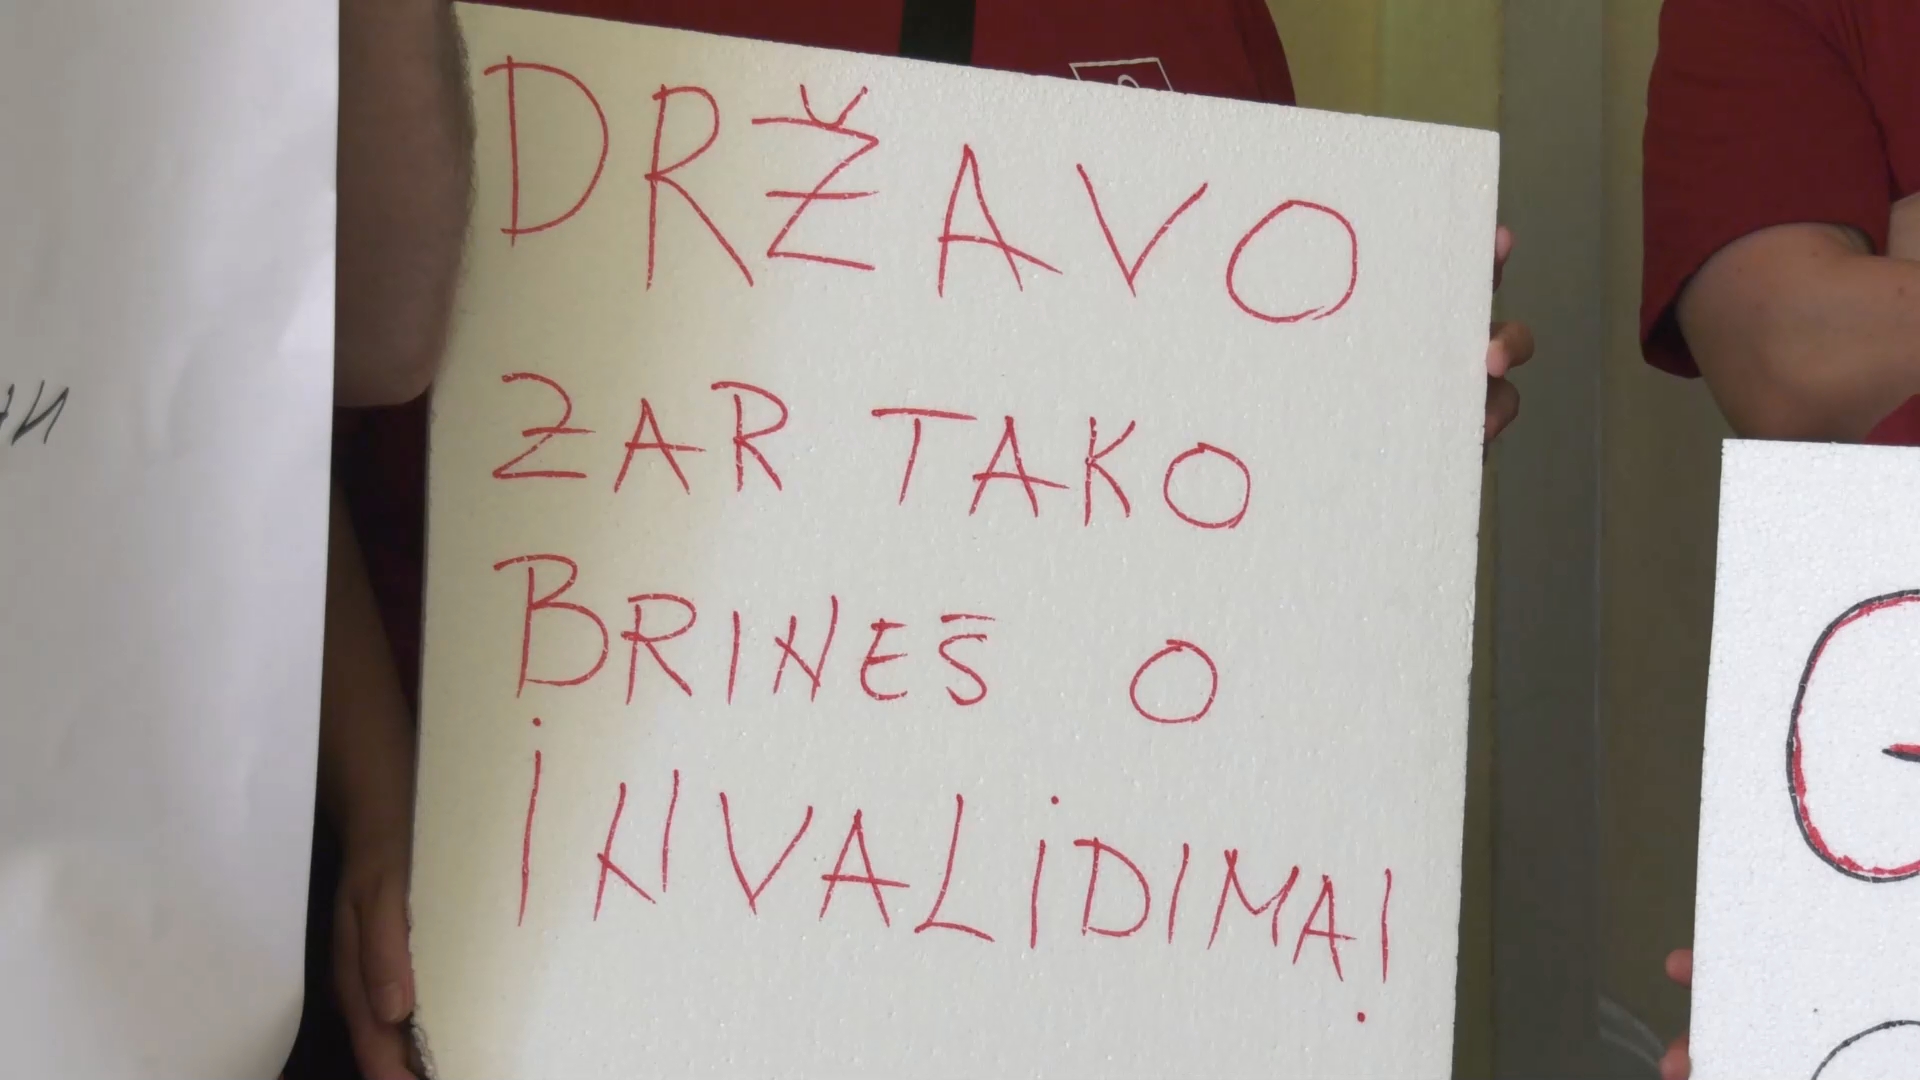 DRŽAVO
ZAR TAKO
BRINEŠ O
INVALIDIMA!